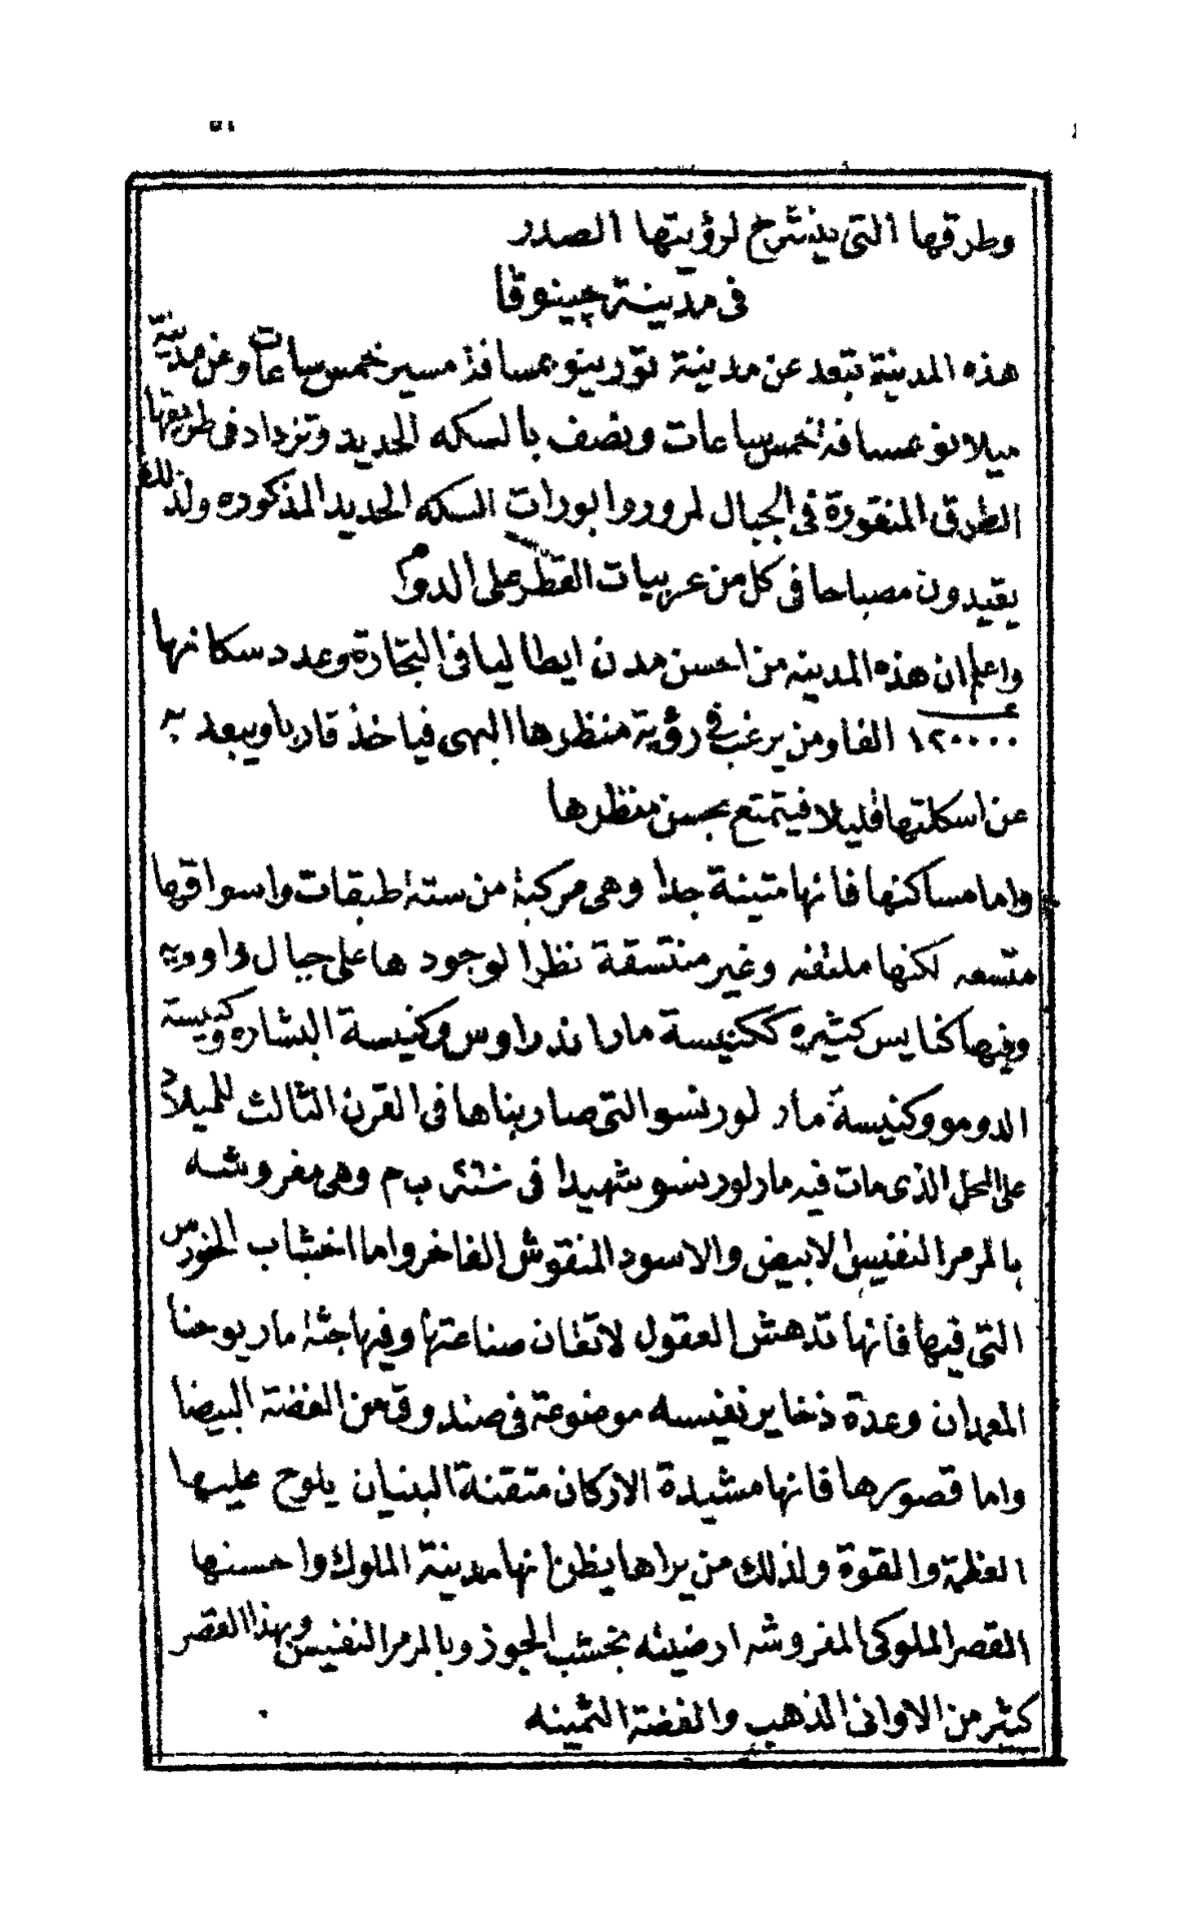 ٥١
وطرقها التى ينشرح لرؤيتها الصدر
فى مدينة چينوڤا
هذه المدينة تبعد عن مدينة تورينو بمسافة مسير خمس ساعات وعن مدينة
ميلانو بمسافة خمس ساعات ونصف بالسكه الحديد وتزداد فى طريقها
الطرق المنقورة فى الجبال لمرور وابورات السكه الحديد المذكوره ولذلك
يقيدون مصباحا فى كل من عربيات القطر على الدوام
واعلم ان هذه المدينه من احسن مدن ايطاليا فى التجارة وعدد سكانها
١٢٠٠٠٠ الفا ومن يرغب فى رؤية منظرها البهى فياخذ قاربا ويبعد به
عن اسكلتها قليلا فيتمتع بحسن منظرها
واما مساكنها فانها متينة جدا وهى مركبة من ستة طبقات واسواقها
متسعه لكنها ملتفه وغير منتسقة نظرا لوجودها على جبال واوديه
وفيها كنايس كثيره ككنيسة مار اندراوس وكنيسة البشاره وكنيسة
الدومو وكنيسة مار لورنسو التى صار بناها فى القرن الثالث للميلاد
على المحل الذى مات فيه مار لورنسو شهيدا فى سنة ٢٦٠ ب م وهى مفروشه
بالمرمر النفيس الابيض والاسود المنقوش الفاخر واما اخشاب الخورس
التى فيها فانها تدهش العقول لاتقان صناعتها وفيها جثة مار يوحنا
المعمدان وعدة ذخاير نفيسه موضوعة فى صندوق من الفضة البيضا
واما قصورها فانها مشيدة الاركان متقنة البنيان يلوح عليها
العظمة والقوة ولذلك من يراها يظن انها مدينة الملوك واحسنها
القصر الملوكى المفروشه ارضيته بخشب الجوز وبالمرمر النفيس وبهذا القصر
كثير من الاوانى الذهب والفضة الثمينه